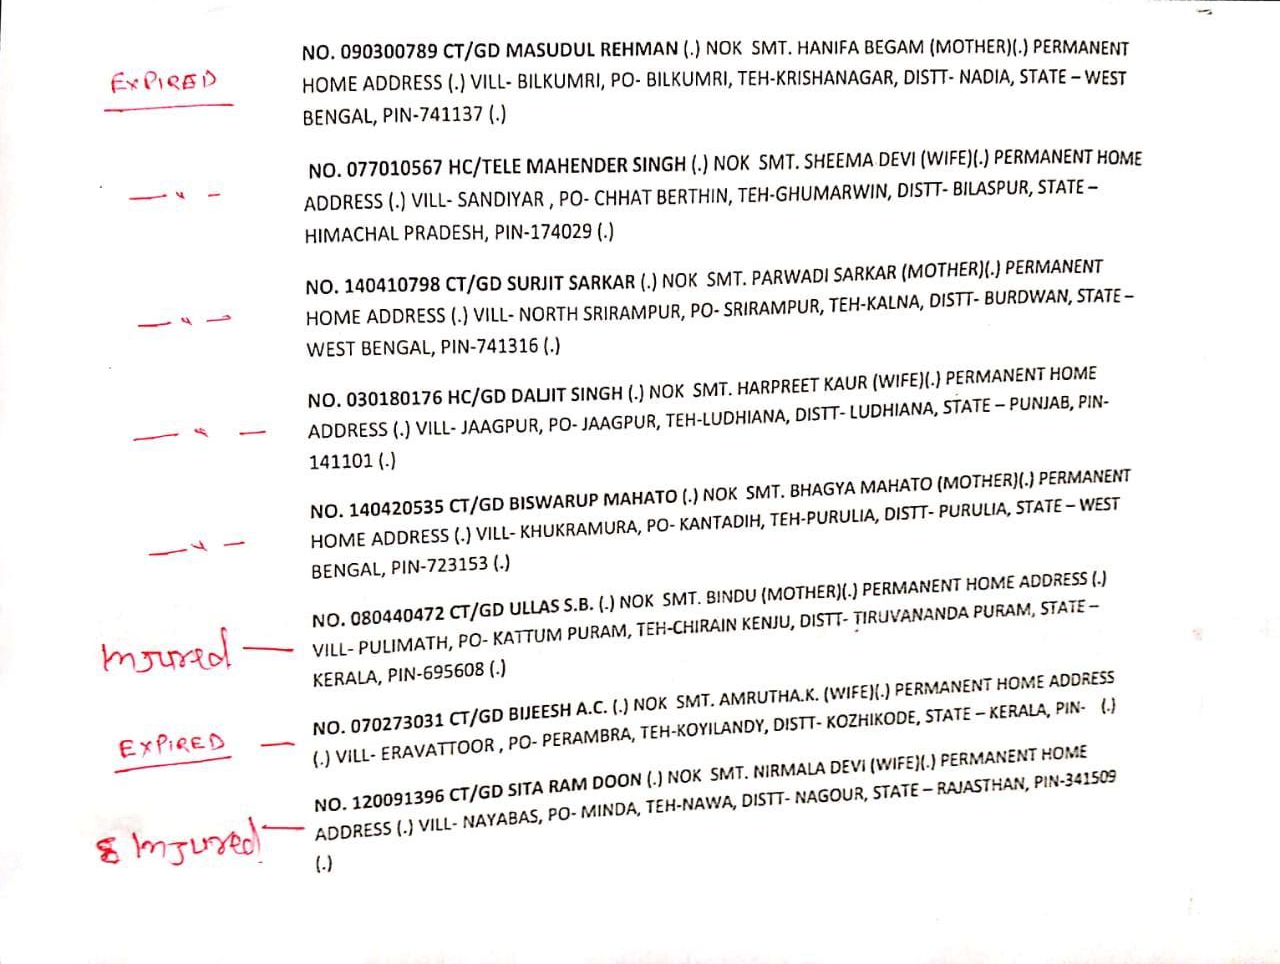 EXPIRED
NO. 090300789 CT/GD MASUDUL REHMAN (.) NOK SMT. HANIFA BEGAM (MOTHER)(.) PERMANENT
HOME ADDRESS (.) VILL- BILKUMRI, PO- BILKUMRI, TEH-KRISHANAGAR, DISTT- NADIA, STATE – WEST
BENGAL, PIN-741137 (.)
— " —
NO. 077010567 HC/TELE MAHENDER SINGH (.) NOK SMT. SHEEMA DEVI (WIFE)(.) PERMANENT HOME
ADDRESS (.) VILL- SANDIYAR , PO- CHHAT BERTHIN, TEH-GHUMARWIN, DISTT- BILASPUR, STATE –
HIMACHAL PRADESH, PIN-174029 (.)
— " —
NO. 140410798 CT/GD SURJIT SARKAR (.) NOK SMT. PARWADI SARKAR (MOTHER)(.) PERMANENT
HOME ADDRESS (.) VILL- NORTH SRIRAMPUR, PO- SRIRAMPUR, TEH-KALNA, DISTT- BURDWAN, STATE –
WEST BENGAL, PIN-741316 (.)
— " —
NO. 030180176 HC/GD DALJIT SINGH (.) NOK SMT. HARPREET KAUR (WIFE)(.) PERMANENT HOME
ADDRESS (.) VILL- JAAGPUR, PO- JAAGPUR, TEH-LUDHIANA, DISTT- LUDHIANA, STATE – PUNJAB, PIN-
141101 (.)
— " —
NO. 140420535 CT/GD BISWARUP MAHATO (.) NOK SMT. BHAGYA MAHATO (MOTHER)(.) PERMANENT
HOME ADDRESS (.) VILL- KHUKRAMURA, PO- KANTADIH, TEH-PURULIA, DISTT- PURULIA, STATE – WEST
BENGAL, PIN-723153 (.)
Injured —
NO. 080440472 CT/GD ULLAS S.B. (.) NOK SMT. BINDU (MOTHER)(.) PERMANENT HOME ADDRESS (.)
VILL- PULIMATH, PO- KATTUM PURAM, TEH-CHIRAIN KENJU, DISTT- TIRUVANANDA PURAM, STATE –
KERALA, PIN-695608 (.)
EXPIRED —
NO. 070273031 CT/GD BIJEESH A.C. (.) NOK SMT. AMRUTHA.K. (WIFE)(.) PERMANENT HOME ADDRESS
(.) VILL- ERAVATTOOR , PO- PERAMBRA, TEH-KOYILANDY, DISTT- KOZHIKODE, STATE – KERALA, PIN- (.)
Injured —
NO. 120091396 CT/GD SITA RAM DOON (.) NOK SMT. NIRMALA DEVI (WIFE)(.) PERMANENT HOME
ADDRESS (.) VILL- NAYABAS, PO- MINDA, TEH-NAWA, DISTT- NAGOUR, STATE – RAJASTHAN, PIN-341509
(.)